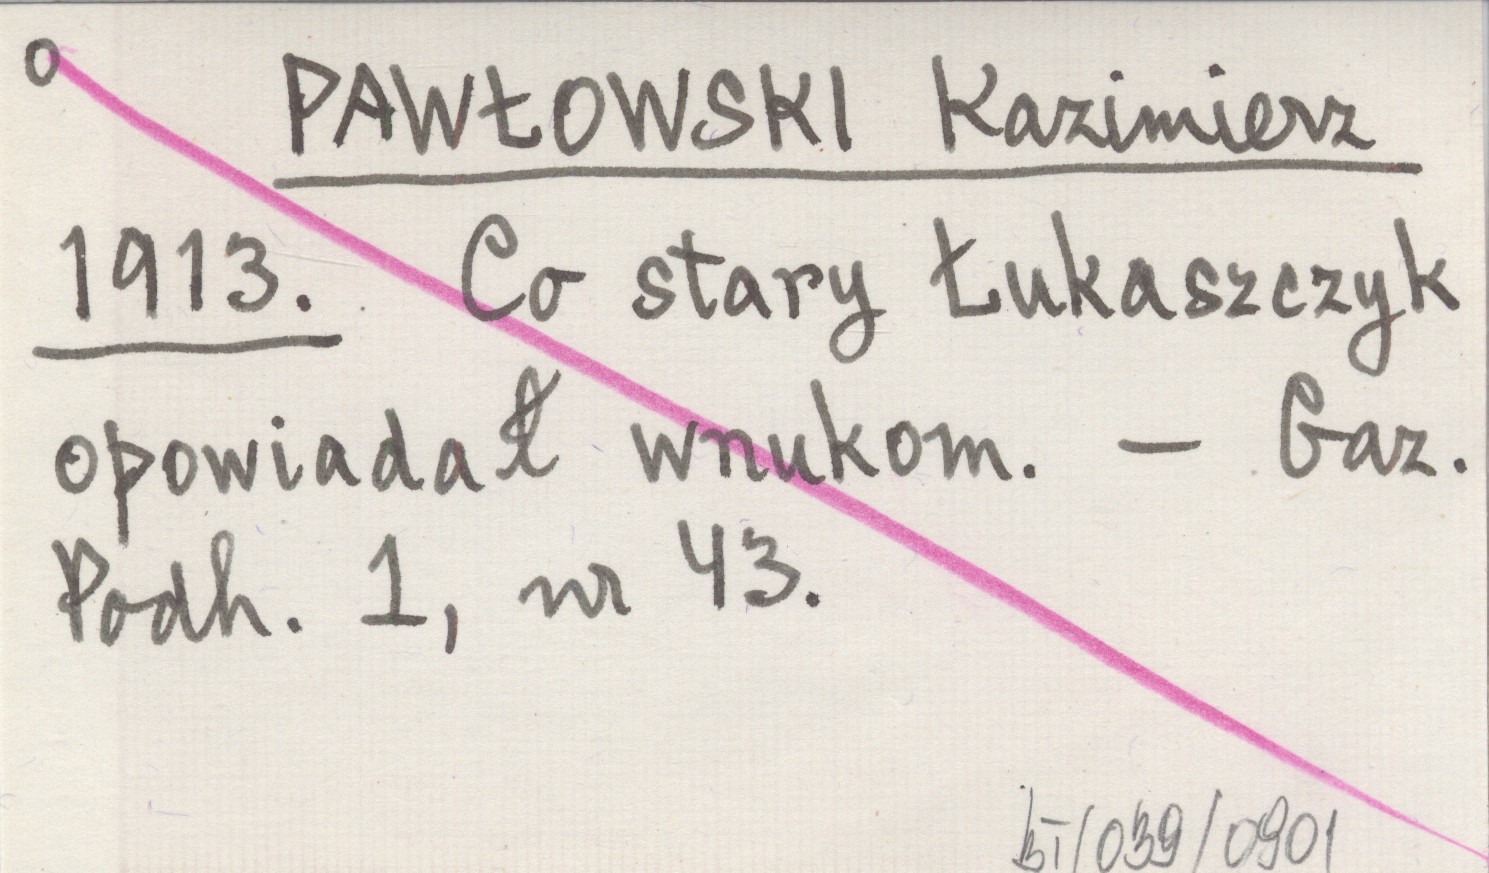 o PAWŁOWSKI Kazimierz
1913. Co stary Łukaszczyk
opowiadał wnukom. — Gaz.
Podh. 1, nr 43.
BT/039/0901